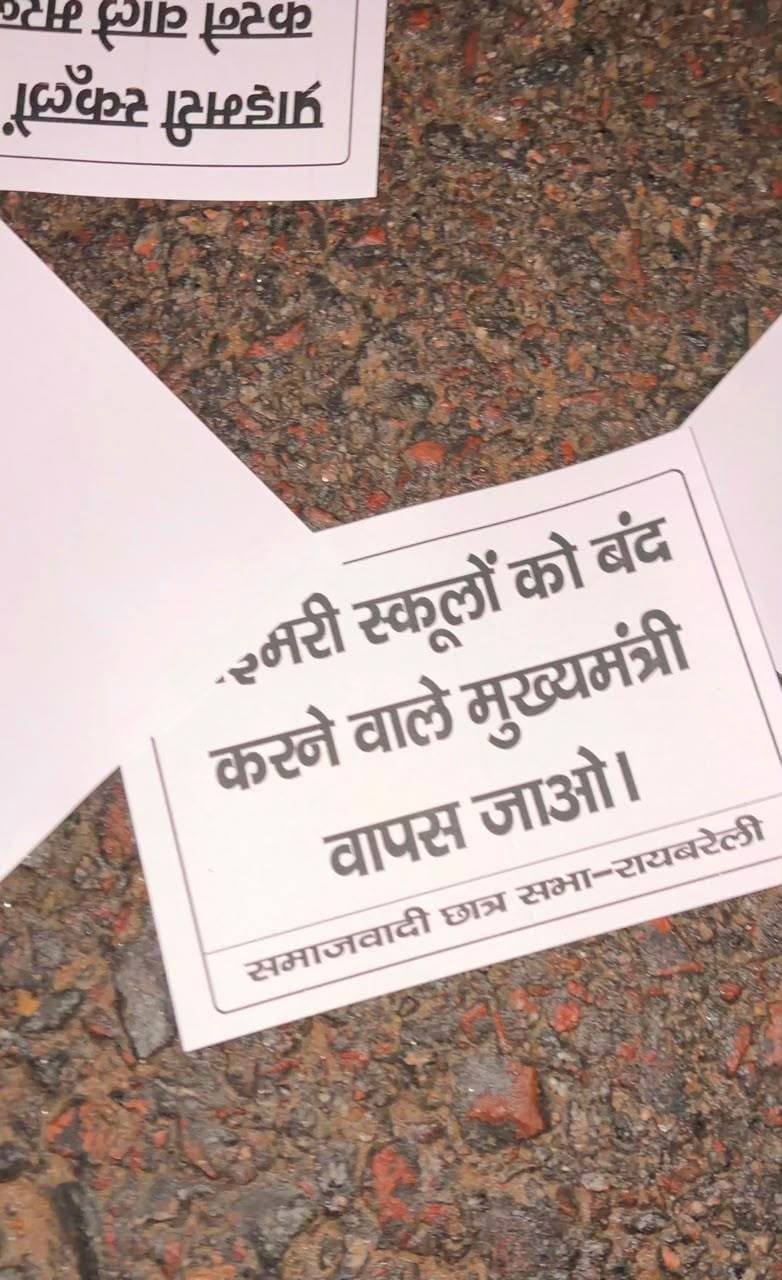 प्राइमरी स्कूलों
करने वाले
स्कूलों को बंद
करने वाले मुख्यमंत्री
वापस जाओ।
समाजवादी छात्र सभा-रायबरेली